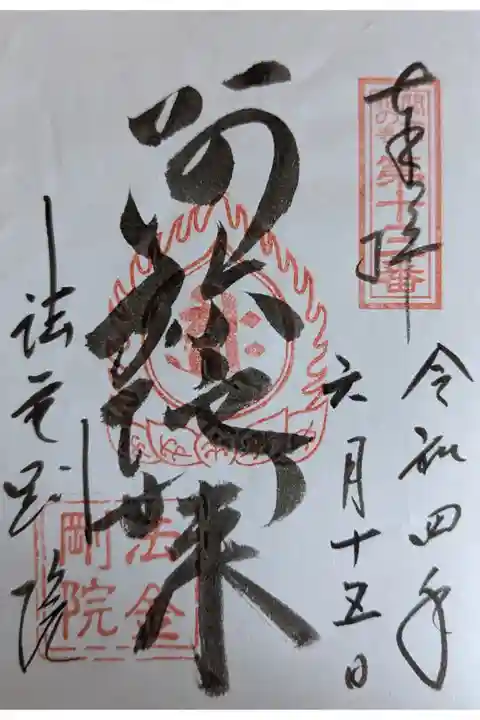 奉拝
第十三番
令和四年
六月十五日
阿弥陀如来
法金剛院
法金
剛院